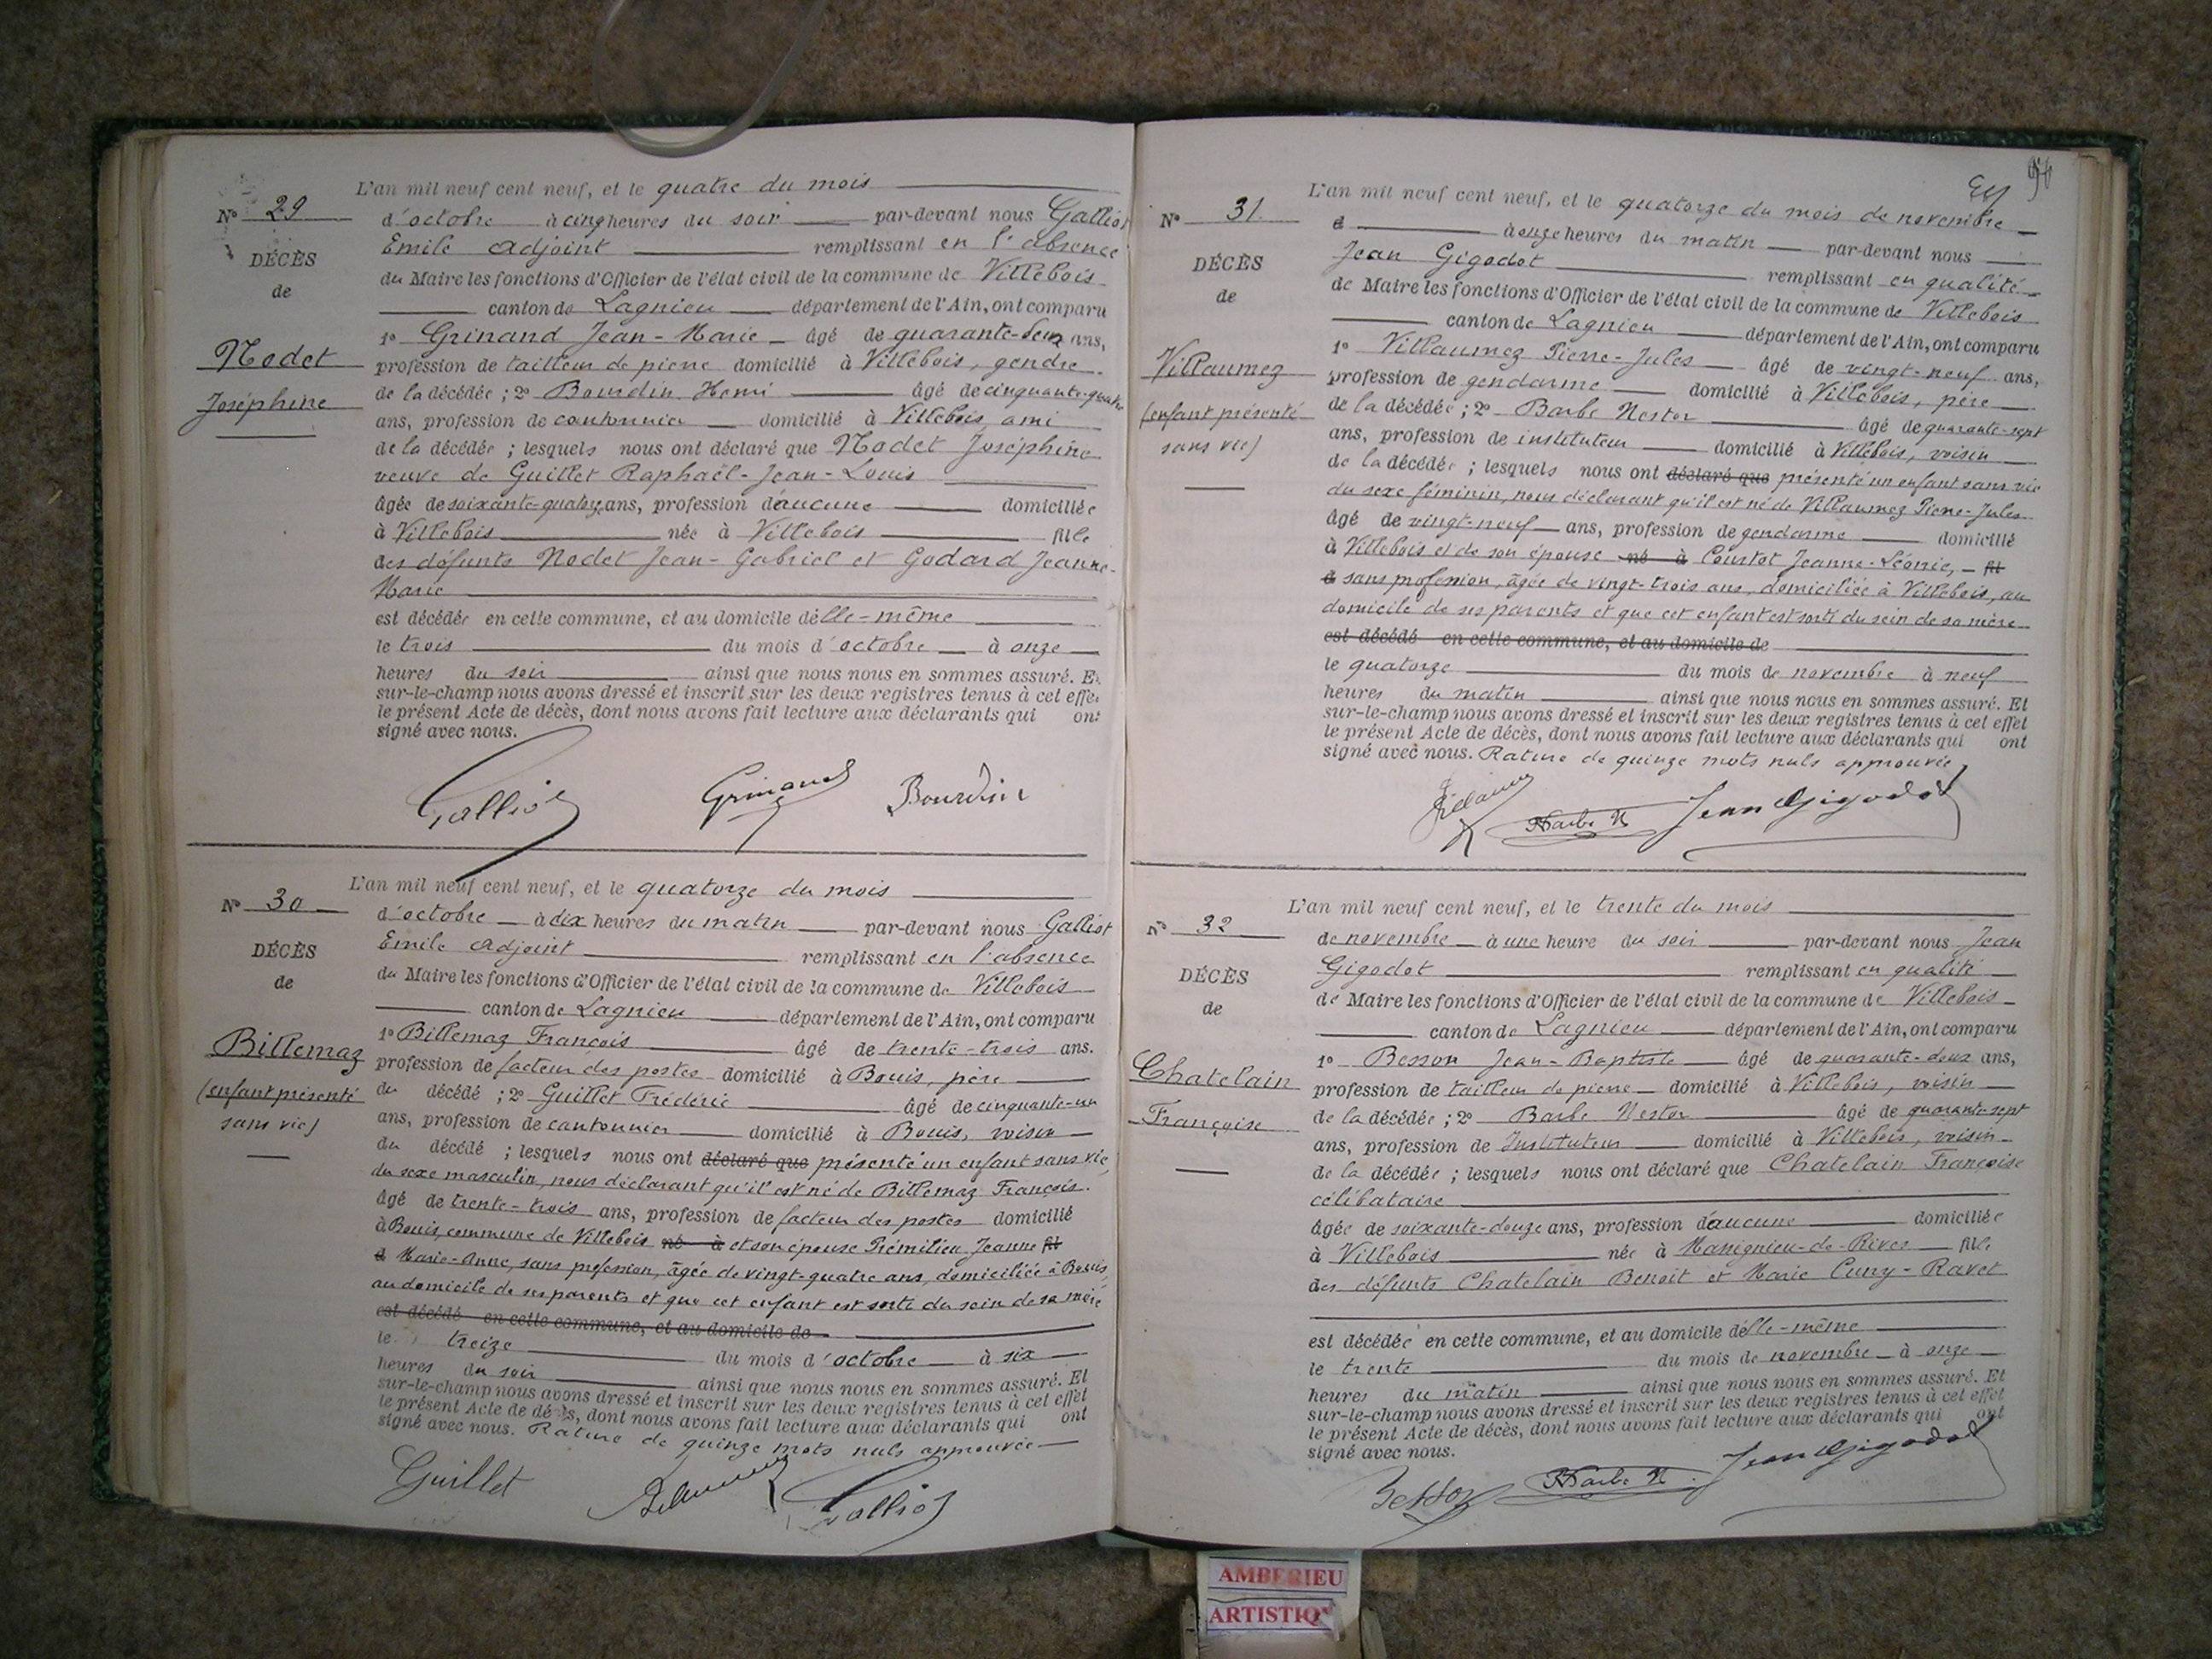 L'an mil neuf cent neuf, et le quatre du mois
N° 29
d'octobre à cinq heures du soir par-devant nous Galliot
Emile adjoint remplissant en l'absence
DÉCÈS
du Maire les fonctions d'Officier de l'état civil de la commune de Villebois
de
canton de Lagnieu département de l'Ain, ont comparu
1° Grinand Jean-Marie âgé de quarante-deux ans,
Nodet
profession de tailleur de pierre domicilié à Villebois, gendre
Joséphine
de la décédée ; 2° Bourdin Henri âgé de cinquante-quatre
ans, profession de cantonnier domicilié à Villebois ami
de la décédée ; lesquels nous ont déclaré que Nodet Joséphine
veuve de Guillet Raphaël-Jean-Louis
âgée de soixante-quatorze ans, profession d'aucune domiciliée
à Villebois née à Villebois fille
des défunts Nodet Jean-Gabriel et Godard Jeanne-
Marie
est décédée en cette commune, et au domicile d'elle-même
le trois du mois d'octobre à onze
heures du soir ainsi que nous nous en sommes assuré. Et
sur-le-champ nous avons dressé et inscrit sur les deux registres tenus à cet effet
le présent Acte de décès, dont nous avons fait lecture aux déclarants qui ont
signé avec nous.
Galliot Grinand Bourdin
L'an mil neuf cent neuf, et le quatorze du mois
N° 30
d'octobre à dix heures du matin par-devant nous Galliot
Emile adjoint remplissant en l'absence
DÉCÈS
du Maire les fonctions d'Officier de l'état civil de la commune de Villebois
de
canton de Lagnieu département de l'Ain, ont comparu
Billemaz
1° Billemaz François âgé de trente-trois ans.
profession de facteur des postes domicilié à Bouis, père
(enfant présenté
du décédé ; 2° Guillet Frédéric âgé de cinquante-un
sans vie)
ans, profession de cantonnier domicilié à Bouis, voisin
du décédé ; lesquels nous ont déclaré que présenté un enfant sans vie,
du sexe masculin, nous déclarant qu'il est né de Billemaz François.
âgé de trente-trois ans, profession de facteur des postes domicilié
à Bouis, commune de Villebois né à et son épouse Prémilieu Jeanne fil
d Marie-Anne, sans profession, âgée de vingt-quatre ans, domiciliée à Bouis,
au domicile de ses parents et que cet enfant est sorti du sein de sa mère
est décédé en cette commune, et au domicile de
le treize du mois d'octobre à six
heures du soir ainsi que nous nous en sommes assuré. Et
sur-le-champ nous avons dressé et inscrit sur les deux registres tenus à cet effet
le présent Acte de décès, dont nous avons fait lecture aux déclarants qui ont
signé avec nous. Rature de quinze mots nuls approuvée
Guillet Galliot
L'an mil neuf cent neuf, et le quatorze du mois de novembre
N° 31
d à onze heures du matin par-devant nous
DÉCÈS
Jean Gigodot remplissant en qualité
de
de Maire les fonctions d'Officier de l'état civil de la commune de Villebois
canton de Lagnieu département de l'Ain, ont comparu
Villaumez
1° Villaumez Pierre-Jules âgé de vingt-neuf ans,
profession de gendarme domicilié à Villebois, père
(enfant présenté
de la décédée ; 2° Barbe Nestor âgé de quarante-sept
sans vie)
ans, profession de instituteur domicilié à Villebois, voisin
de la décédée ; lesquels nous ont déclaré que présenté un enfant sans vie
du sexe féminin, nous déclarant qu'il est né de Villaumez Pierre-Jules
âgé de vingt-neuf ans, profession de gendarme domicilié
à Villebois et de son épouse né à Courtot Jeanne-Léonie, fil
d sans profession, âgée de vingt-trois ans, domiciliée à Villebois, au
domicile de ses parents et que cet enfant est sorti du sein de sa mère
est décédé en cette commune, et au domicile de
le quatorze du mois de novembre à neuf
heures du matin ainsi que nous nous en sommes assuré. Et
sur-le-champ nous avons dressé et inscrit sur les deux registres tenus à cet effet
le présent Acte de décès, dont nous avons fait lecture aux déclarants qui ont
signé avec nous. Rature de quinze mots nuls approuvée
Barbe N Jean Gigodot
L'an mil neuf cent neuf, et le trente du mois
N° 32
de novembre à une heure du soir par-devant nous Jean
Gigodot remplissant en qualité
DÉCÈS
de Maire les fonctions d'Officier de l'état civil de la commune de Villebois
de
canton de Lagnieu département de l'Ain, ont comparu
1° Besson Jean-Baptiste âgé de quarante-deux ans,
Chatelain
profession de tailleur de pierre domicilié à Villebois, voisin
Françoise
de la décédée ; 2° Barbe Nestor âgé de quarante-sept
ans, profession de Instituteur domicilié à Villebois, voisin
de la décédée ; lesquels nous ont déclaré que Chatelain Françoise
célibataire
âgée de soixante-douze ans, profession d'aucune domiciliée
à Villebois née à Massignieu-de-Rives fille
des défunts Chatelain Benoit et Marie Cuny-Ravet
est décédée en cette commune, et au domicile d'elle-même
le trente du mois de novembre à onze
heures du matin ainsi que nous nous en sommes assuré. Et
sur-le-champ nous avons dressé et inscrit sur les deux registres tenus à cet effet
le présent Acte de décès, dont nous avons fait lecture aux déclarants qui ont
signé avec nous.
Besson Barbe N Jean Gigodot
AMBERIEU
ARTISTIQ